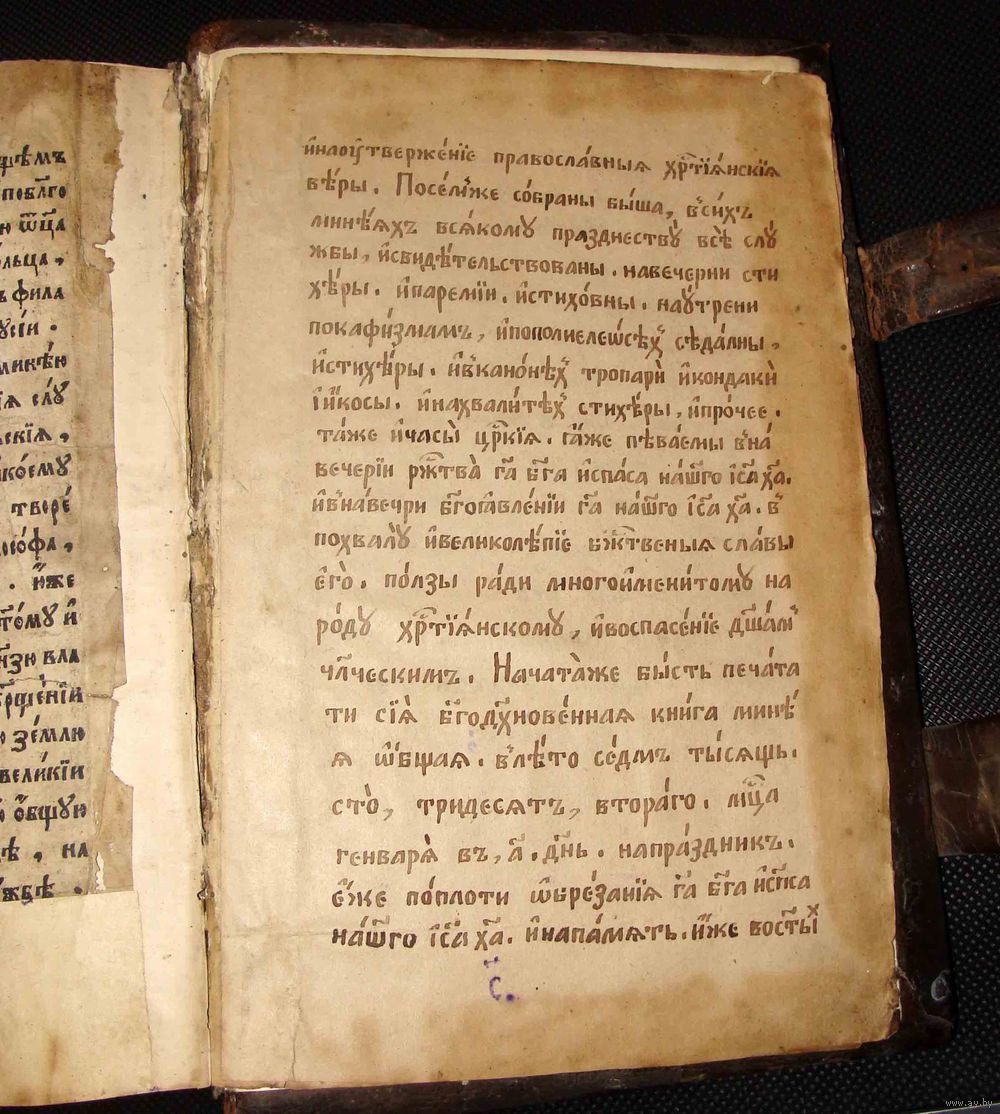 щѣмъ
повл҃го
ю ѿц҃а
льца,
ъ фила
ꙋсїи.
ликѣ́ю
їѧ слꙋ́
скїѧ,
ко́емꙋ
творе́
ѡсо́фа,
. и҆́же
то́мꙋ и҆
нѕю вла
рше́нїи
ю зе́млю
вели́кїи
о҆́бщꙋю
дѣ, на
ꙋ́жбѣ.
и҆наоу҆твержéнїе правосла́вныѧ хрⷭ҇тїѧ́нскїѧ
вѣ́ры. Посе́мꙋже со́браны бы́ша, в̾си́хъ
мине́ѧхъ всѧ́комꙋ пра́зднествꙋ̀ всѐ слꙋ́
жбы, и҆свидѣ́тельствованы. навечерни сти
хѣ́ры. и҆паремїи. и҆стихо́вны. наꙋ́трени
покафи́змамъ, и҆пополиелеѡсѣхъ сѣда́лны,
и҆стихѣ́ры. и҆в̾кано́нѣхъ тропарѝ и҆кондакѝ
і҆и҆́косы. и҆нахвали́тѣхъ стихѣ́ры, и҆про́чее.
та́же и҆часы̀ црⷭ҇кїѧ. ꙗ҆́же пѣва́емы в̾на́
вечерїи ржⷭ҇тва̀ гⷭ҇а бг҃а и҆спа́са на́шего і҆с҃а хⷭ҇а.
и҆в̾на́вечри бг҃оꙗвле́нїи гⷭ҇а на́шего і҆с҃а хⷭ҇а. в̾
похвалꙋ̀ и҆великолѣ́пїе бжⷭ҇твеныѧ сла́вы
є҆гѡ̀. по́лзы ра́ди многои҆мени́томꙋ на
ро́дꙋ хрⷭ҇тїѧ́нскомꙋ, и҆воспасе́нїе дш҃а́мъ
чл҃ческимъ. Начата̀же бы́сть печа́та
ти сїѧ̀ бг҃одх҃нове́нная кни́га мине́
ѧ ѻ҆́бщая. в̾лѣ́то се́дмъ ты́сящь.
сто̀, тридесѧтъ, втора́го. мцⷭ҇а
генварѧ̀ въ, а҃. дн҃ь. напра́здникъ.
є҆́же по́плоти ѡ҆брѣ́занїѧ гⷭ҇а бг҃а и҆сп҃са
на́шего і҆с҃а хⷭ҇а. и҆напа́мѧть. и҆́же востⷭ҇ы́х
с.
www.ay.by